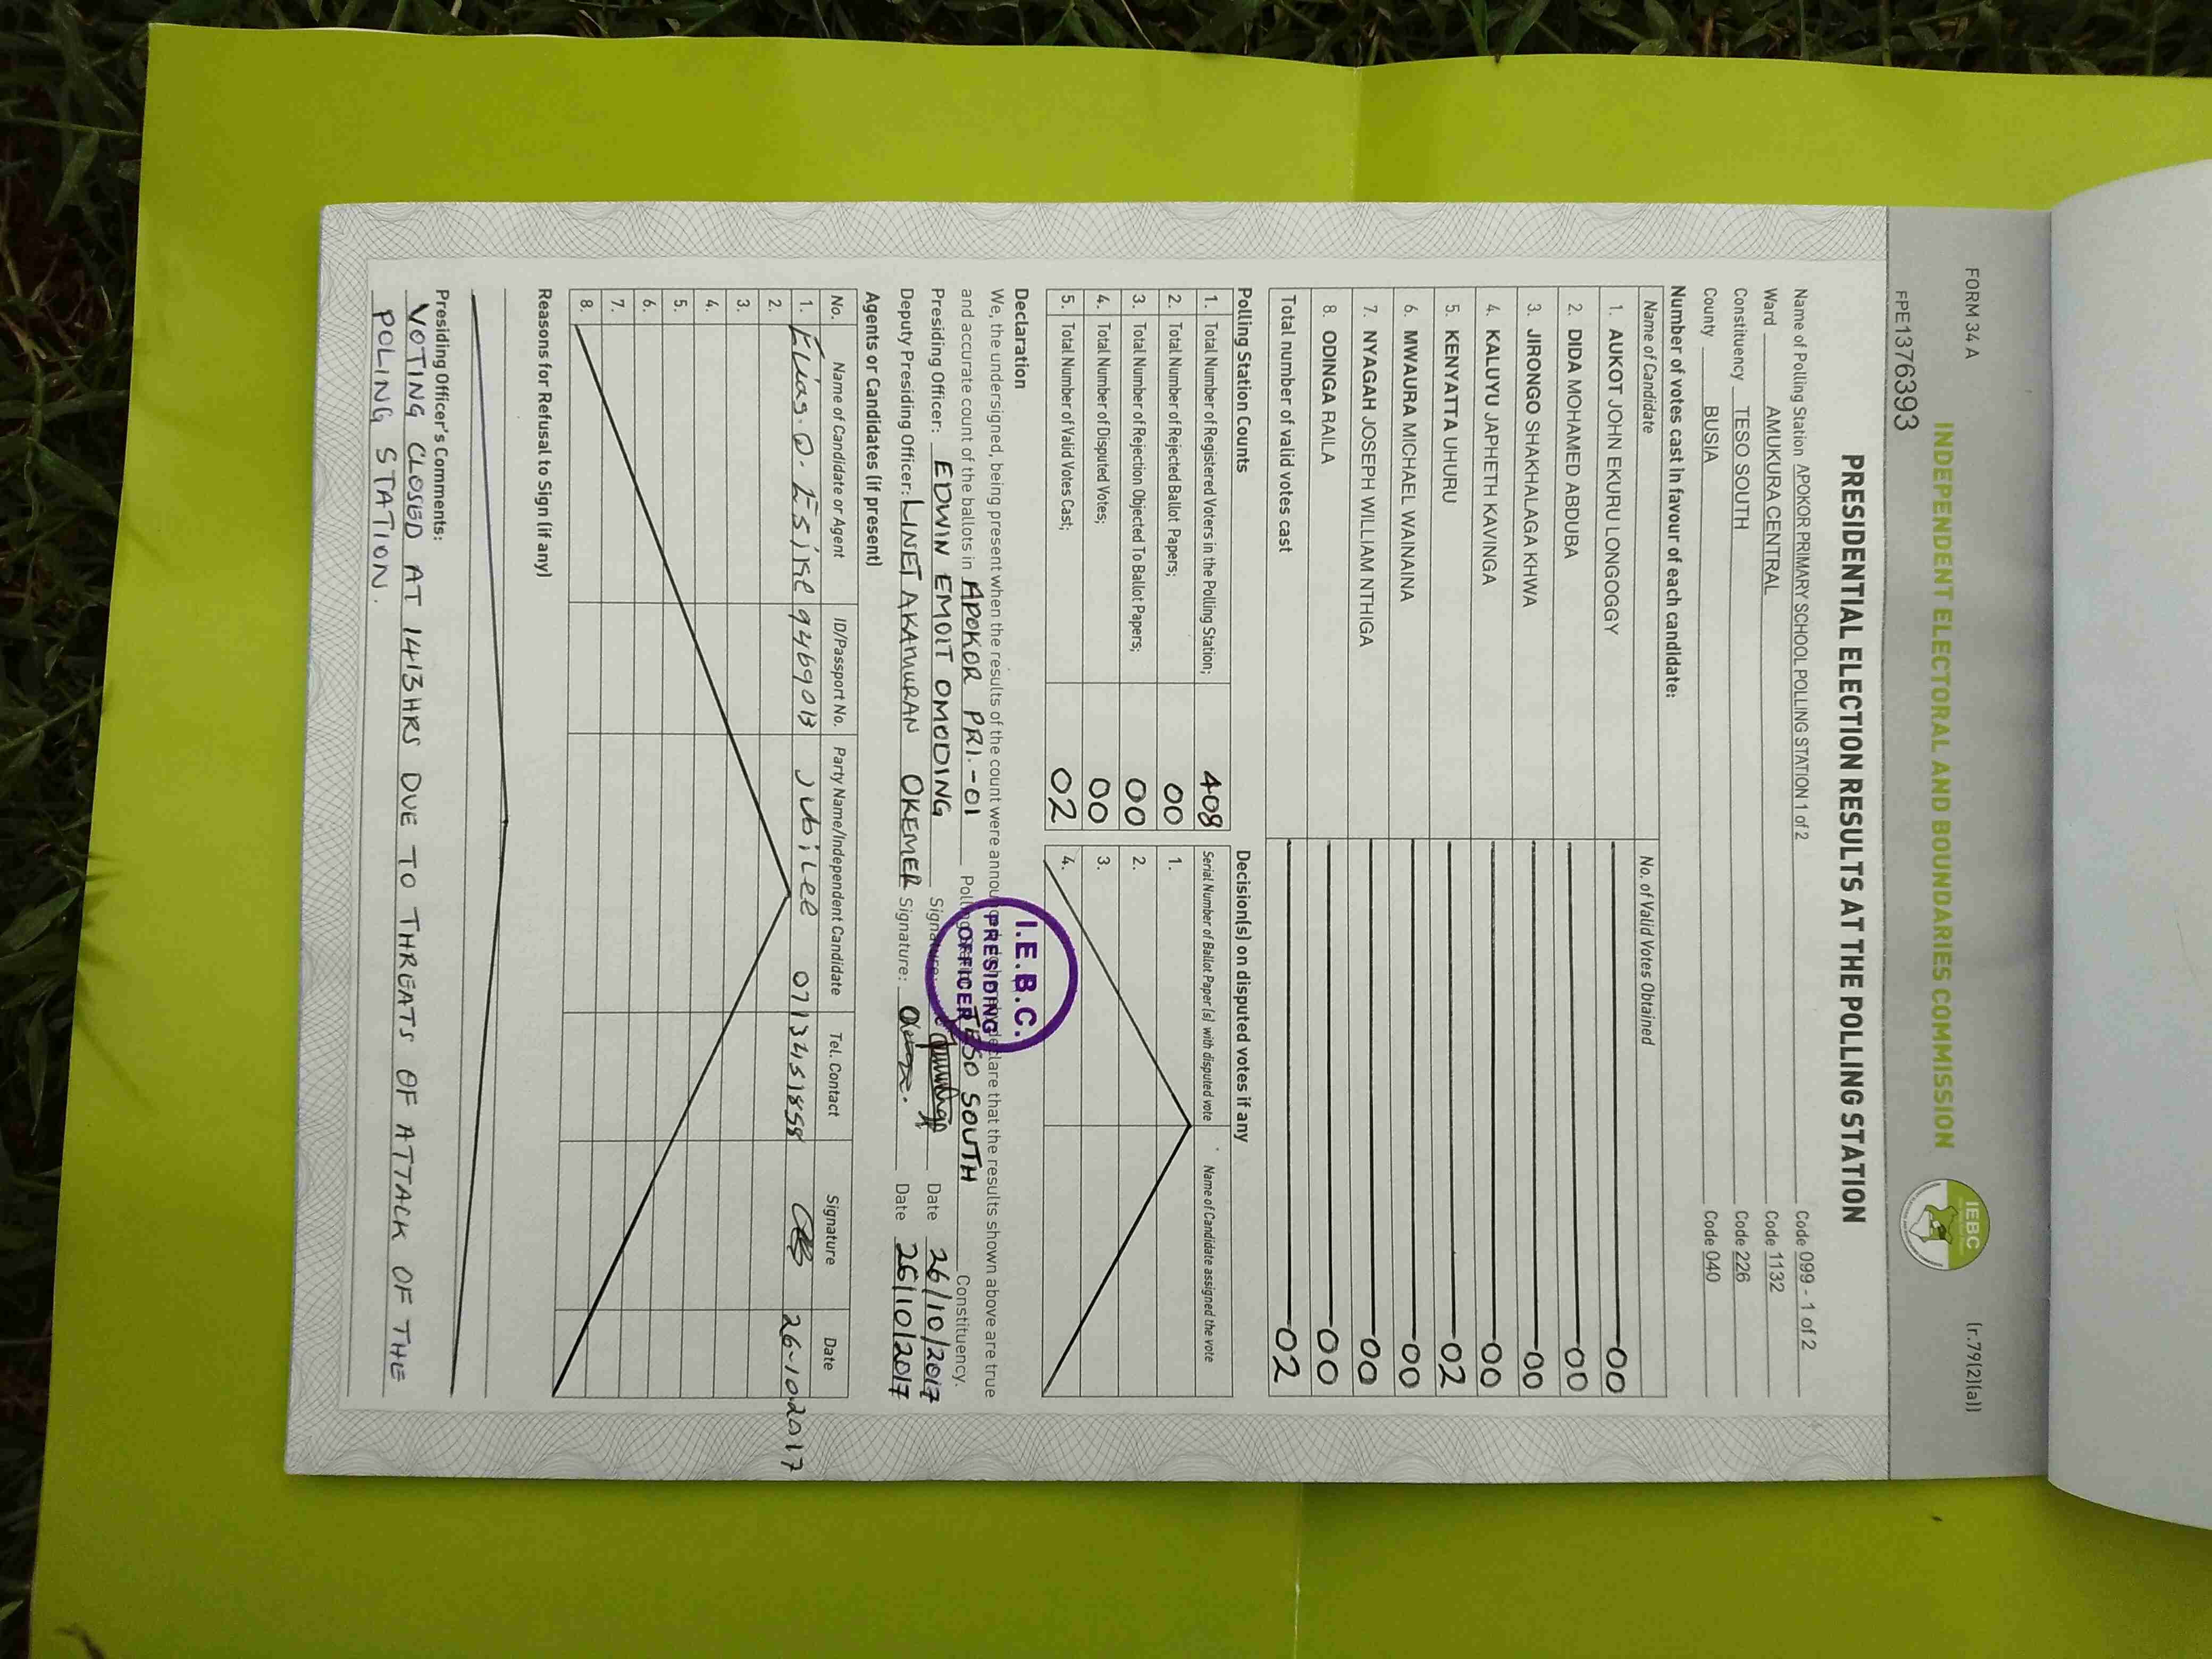 FORM 34 A
(r.79(2)(a))
INDEPENDENT ELECTORAL AND BOUNDARIES COMMISSION
IEBC
FPE13763393
PRESIDENTIAL ELECTION RESULTS AT THE POLLING STATION
Name of Polling Station APOKOR PRIMARY SCHOOL POLLING STATION 1 of 2 Code 099 - 1 of 2
Ward AMUKURA CENTRAL Code 1132
Constituency TESO SOUTH Code 226
County BUSIA Code 040
Number of votes cast in favour of each candidate:
Name of Candidate No. of Valid Votes Obtained
1. AUKOT JOHN EKURU LONGOGGY 00
2. DIDA MOHAMED ABDUBA 00
3. JIRONGO SHAKHALAGA KHWA 00
4. KALUYU JAPHETH KAVINGA 00
5. KENYATTA UHURU 02
6. MWAURA MICHAEL WAINAINA 00
7. NYAGAH JOSEPH WILLIAM NTHIGA 00
8. ODINGA RAILA 00
Total number of valid votes cast 02
Polling Station Counts Decision(s) on disputed votes if any
1. Total Number of Registered Voters in the Polling Station; 408 Serial Number of Ballot Paper (s) with disputed vote Name of Candidate assigned the vote
2. Total Number of Rejected Ballot Papers; 00 1.
3. Total Number of Rejection Objected To Ballot Papers; 00 2.
4. Total Number of Disputed Votes; 00 3.
5. Total Number of Valid Votes Cast; 02 4.
Declaration
We, the undersigned, being present when the results of the count were declare that the results shown above are true
and accurate count of the ballots in APOKOR PRI.-01 TESO SOUTH Constituency.
Presiding Officer: EDWIN EMOIT OMODING Signature: Date 26/10/2017
Deputy Presiding Officer: LINET AKAMURAN OKEMER Signature: Date 26/10/2017
I.E.B.C.
PRESIDING
OFFICER
Agents or Candidates (if present)
No. Name of Candidate or Agent ID/Passport No. Party Name/Independent Candidate Tel. Contact Signature Date
1. Elias. O. 9469013 Jubilee 0713451858 26-10-2017
2.
3.
4.
5.
6.
7.
8.
Reasons for Refusal to Sign (if any)
Presiding Officer's Comments:
VOTING CLOSED AT 1413HRS DUE TO THREATS OF ATTACK OF THE
POLING STATION.